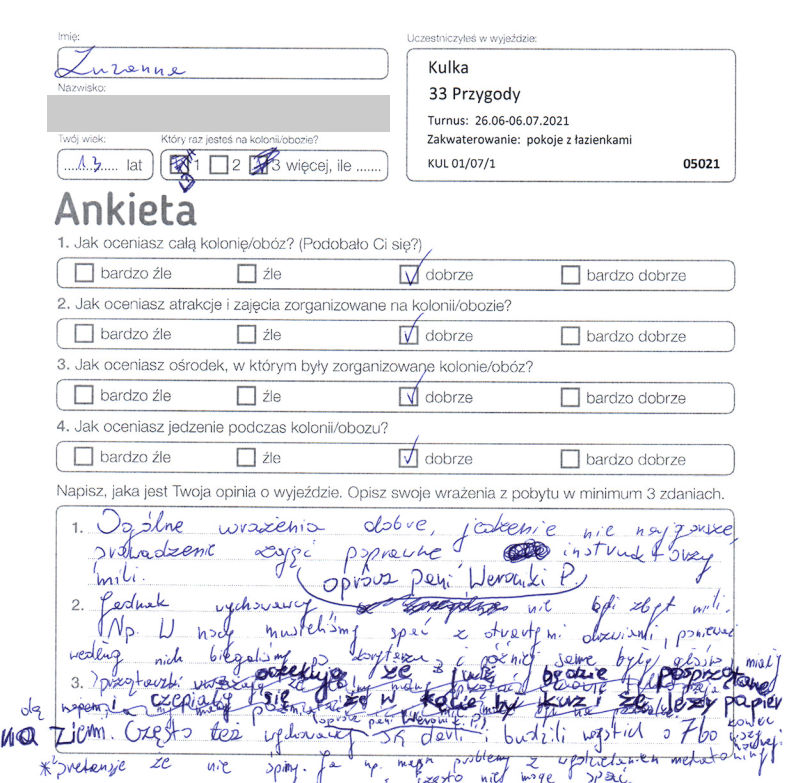 Imię:
Zuzanna
Nazwisko:
Twój wiek:
13 lat
Który raz jesteś na kolonii/obozie?
1 2 3 więcej, ile .......
Uczestniczyłeś w wyjeździe:
Kulka
33 Przygody
Turnus: 26.06-06.07.2021
Zakwaterowanie: pokoje z łazienkami
KUL 01/07/1 05021
Ankieta
1. Jak oceniasz całą kolonię/obóz? (Podobało Ci się?)
bardzo źle źle dobrze bardzo dobrze
2. Jak oceniasz atrakcje i zajęcia zorganizowane na kolonii/obozie?
bardzo źle źle dobrze bardzo dobrze
3. Jak oceniasz ośrodek, w którym były zorganizowane kolonie/obóz?
bardzo źle źle dobrze bardzo dobrze
4. Jak oceniasz jedzenie podczas kolonii/obozu?
bardzo źle źle dobrze bardzo dobrze
Napisz, jaka jest Twoja opinia o wyjeździe. Opisz swoje wrażenia z pobytu w minimum 3 zdaniach.
1. Ogólne wrażenia dobre, jedzenie nie najgorsze,
prowadzenie zajęć poprawne instruktorzy
mili.
oprócz Pani Weroniki P.
2. Jednak wychowawcy nie byli zbyt mili.
Np. W nocy musieliśmy spać z otwartymi drzwiami, ponieważ
według nich biegaliśmy po korytarzu, i później same były głośno
3. oczekują że będzie posprzątane
czepiają się że w kącie był kurz i że leży papier
na ziemi. Często też wychowawcy budzili wszystkich o 7
(oprócz pani Weroniki P.)
* że nie śpimy. Ja np. mam problemy z
często nie mogę spać.